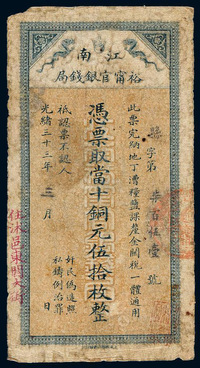 江南
裕甯官銀錢局
字第柒百伍壹號
此票完納地丁漕糧鹽課釐金關稅一體通用
憑票取當十銅元伍拾枚整
祇認票不認人
奸民偽造照
私鑄例治罪
光緒三十三年三月日
住沭邑東關大